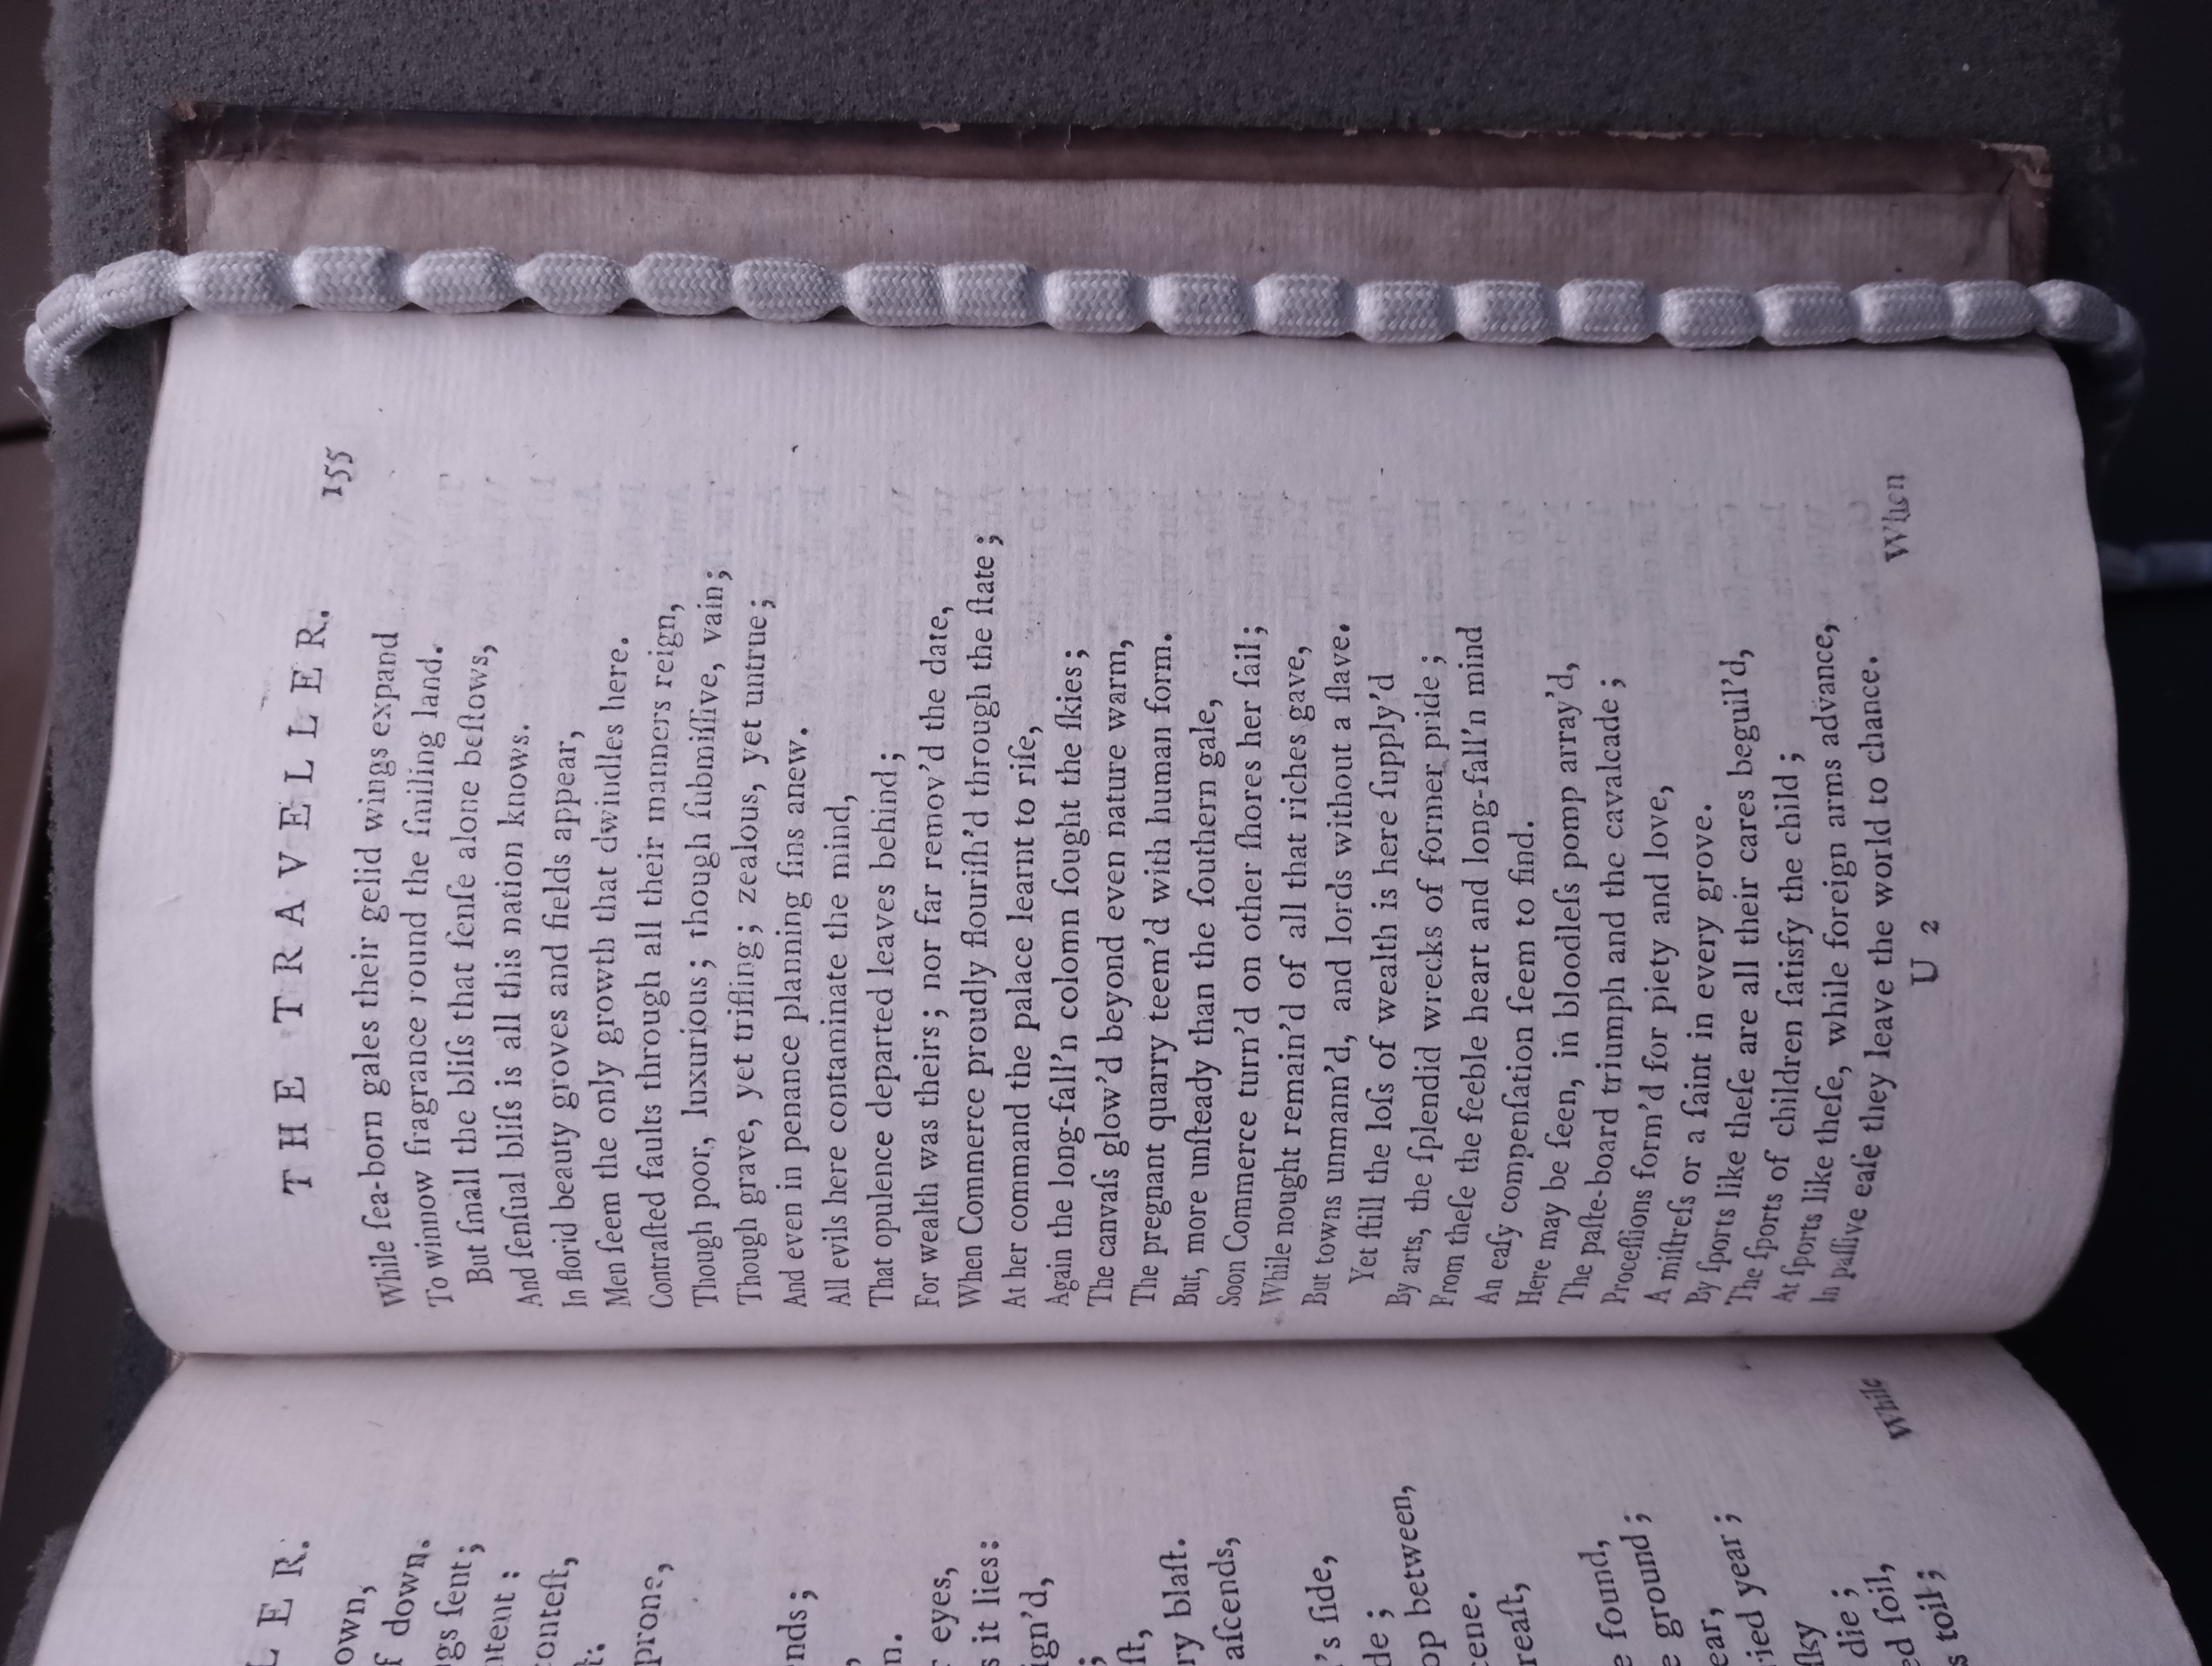 LER.
own,
f down.
gs ſent;
ntent:
onteſt,
t.
prone,
nds;
n.
eyes,
s it lies:
ign'd,
ſt,
ry blaſt.
aſcends,
's ſide,
de;
op between,
cene.
reaſt,
e found,
e ground;
ear,
ried year;
ſky
die;
ed ſoil,
s toil;
While
THE TRAVELLER. 155
While ſea-born gales their gelid wings expand
To winnow fragrance round the ſmiling land.
But ſmall the bliſs that ſenſe alone beſtows,
And ſenſual bliſs is all this nation knows.
In florid beauty groves and fields appear,
Men ſeem the only growth that dwindles here.
Contraſted faults through all their manners reign,
Though poor, luxurious; though ſubmiſſive, vain;
Though grave, yet trifling; zealous, yet untrue;
And even in penance planning ſins anew.
All evils here contaminate the mind,
That opulence departed leaves behind;
For wealth was theirs; nor far remov'd the date,
When Commerce proudly flouriſh'd through the ſtate;
At her command the palace learnt to riſe,
Again the long-fall'n colomn ſought the ſkies;
The canvaſs glow'd beyond even nature warm,
The pregnant quarry teem'd with human form.
But, more unſteady than the ſouthern gale,
Soon Commerce turn'd on other ſhores her ſail;
While nought remain'd of all that riches gave,
But towns unmann'd, and lords without a ſlave.
Yet ſtill the loſs of wealth is here ſupply'd
By arts, the ſplendid wrecks of former pride;
From theſe the feeble heart and long-fall'n mind
An eaſy compenſation ſeem to find.
Here may be ſeen, in bloodleſs pomp array'd,
The paſte-board triumph and the cavalcade;
Proceſſions form'd for piety and love,
A miſtreſs or a ſaint in every grove.
By ſports like theſe are all their cares beguil'd,
The ſports of children ſatisfy the child;
At ſports like theſe, while foreign arms advance,
In paſſive eaſe they leave the world to chance.
U 2 When